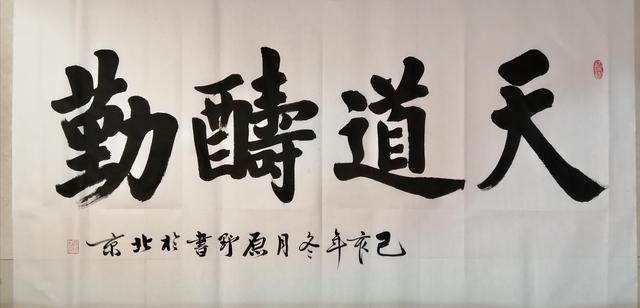 天道醻勤
己亥年冬月原野書於北京